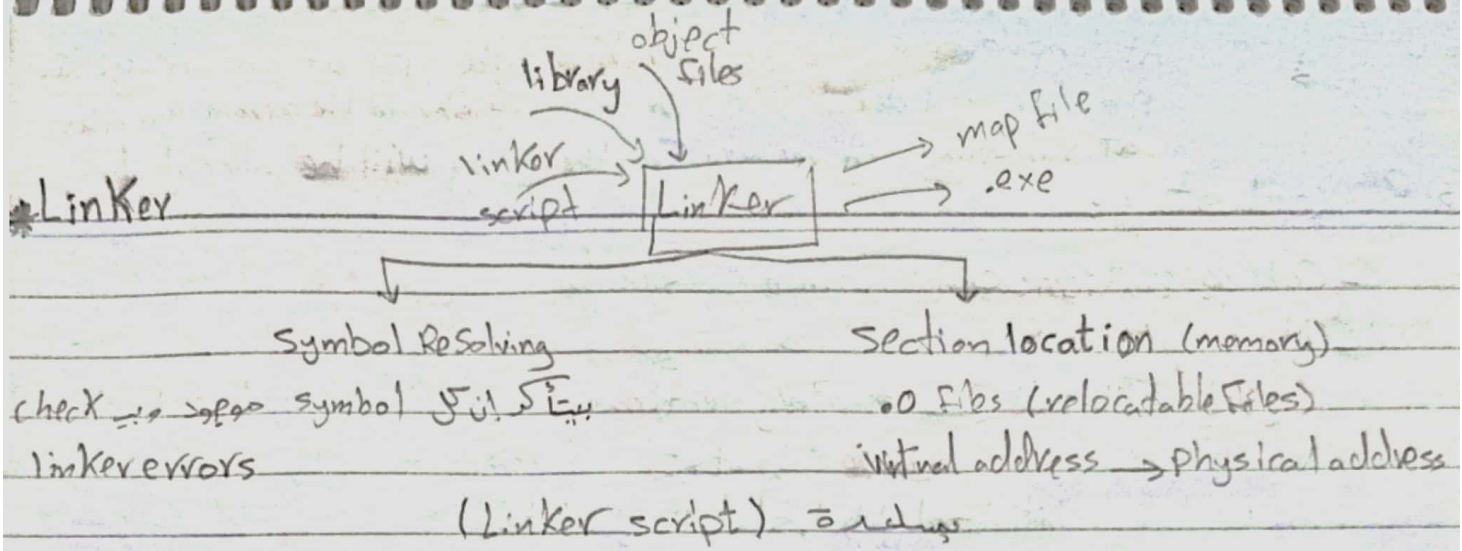 object
files
library
linker
script
map file
.exe
*Linker
Linker
Symbol Resolving
Section location (memory)
بيتأكد إن كل symbol موجود وبـ check
linker errors
.o files (relocatable files)
virtual address → physical address
(Linker script)